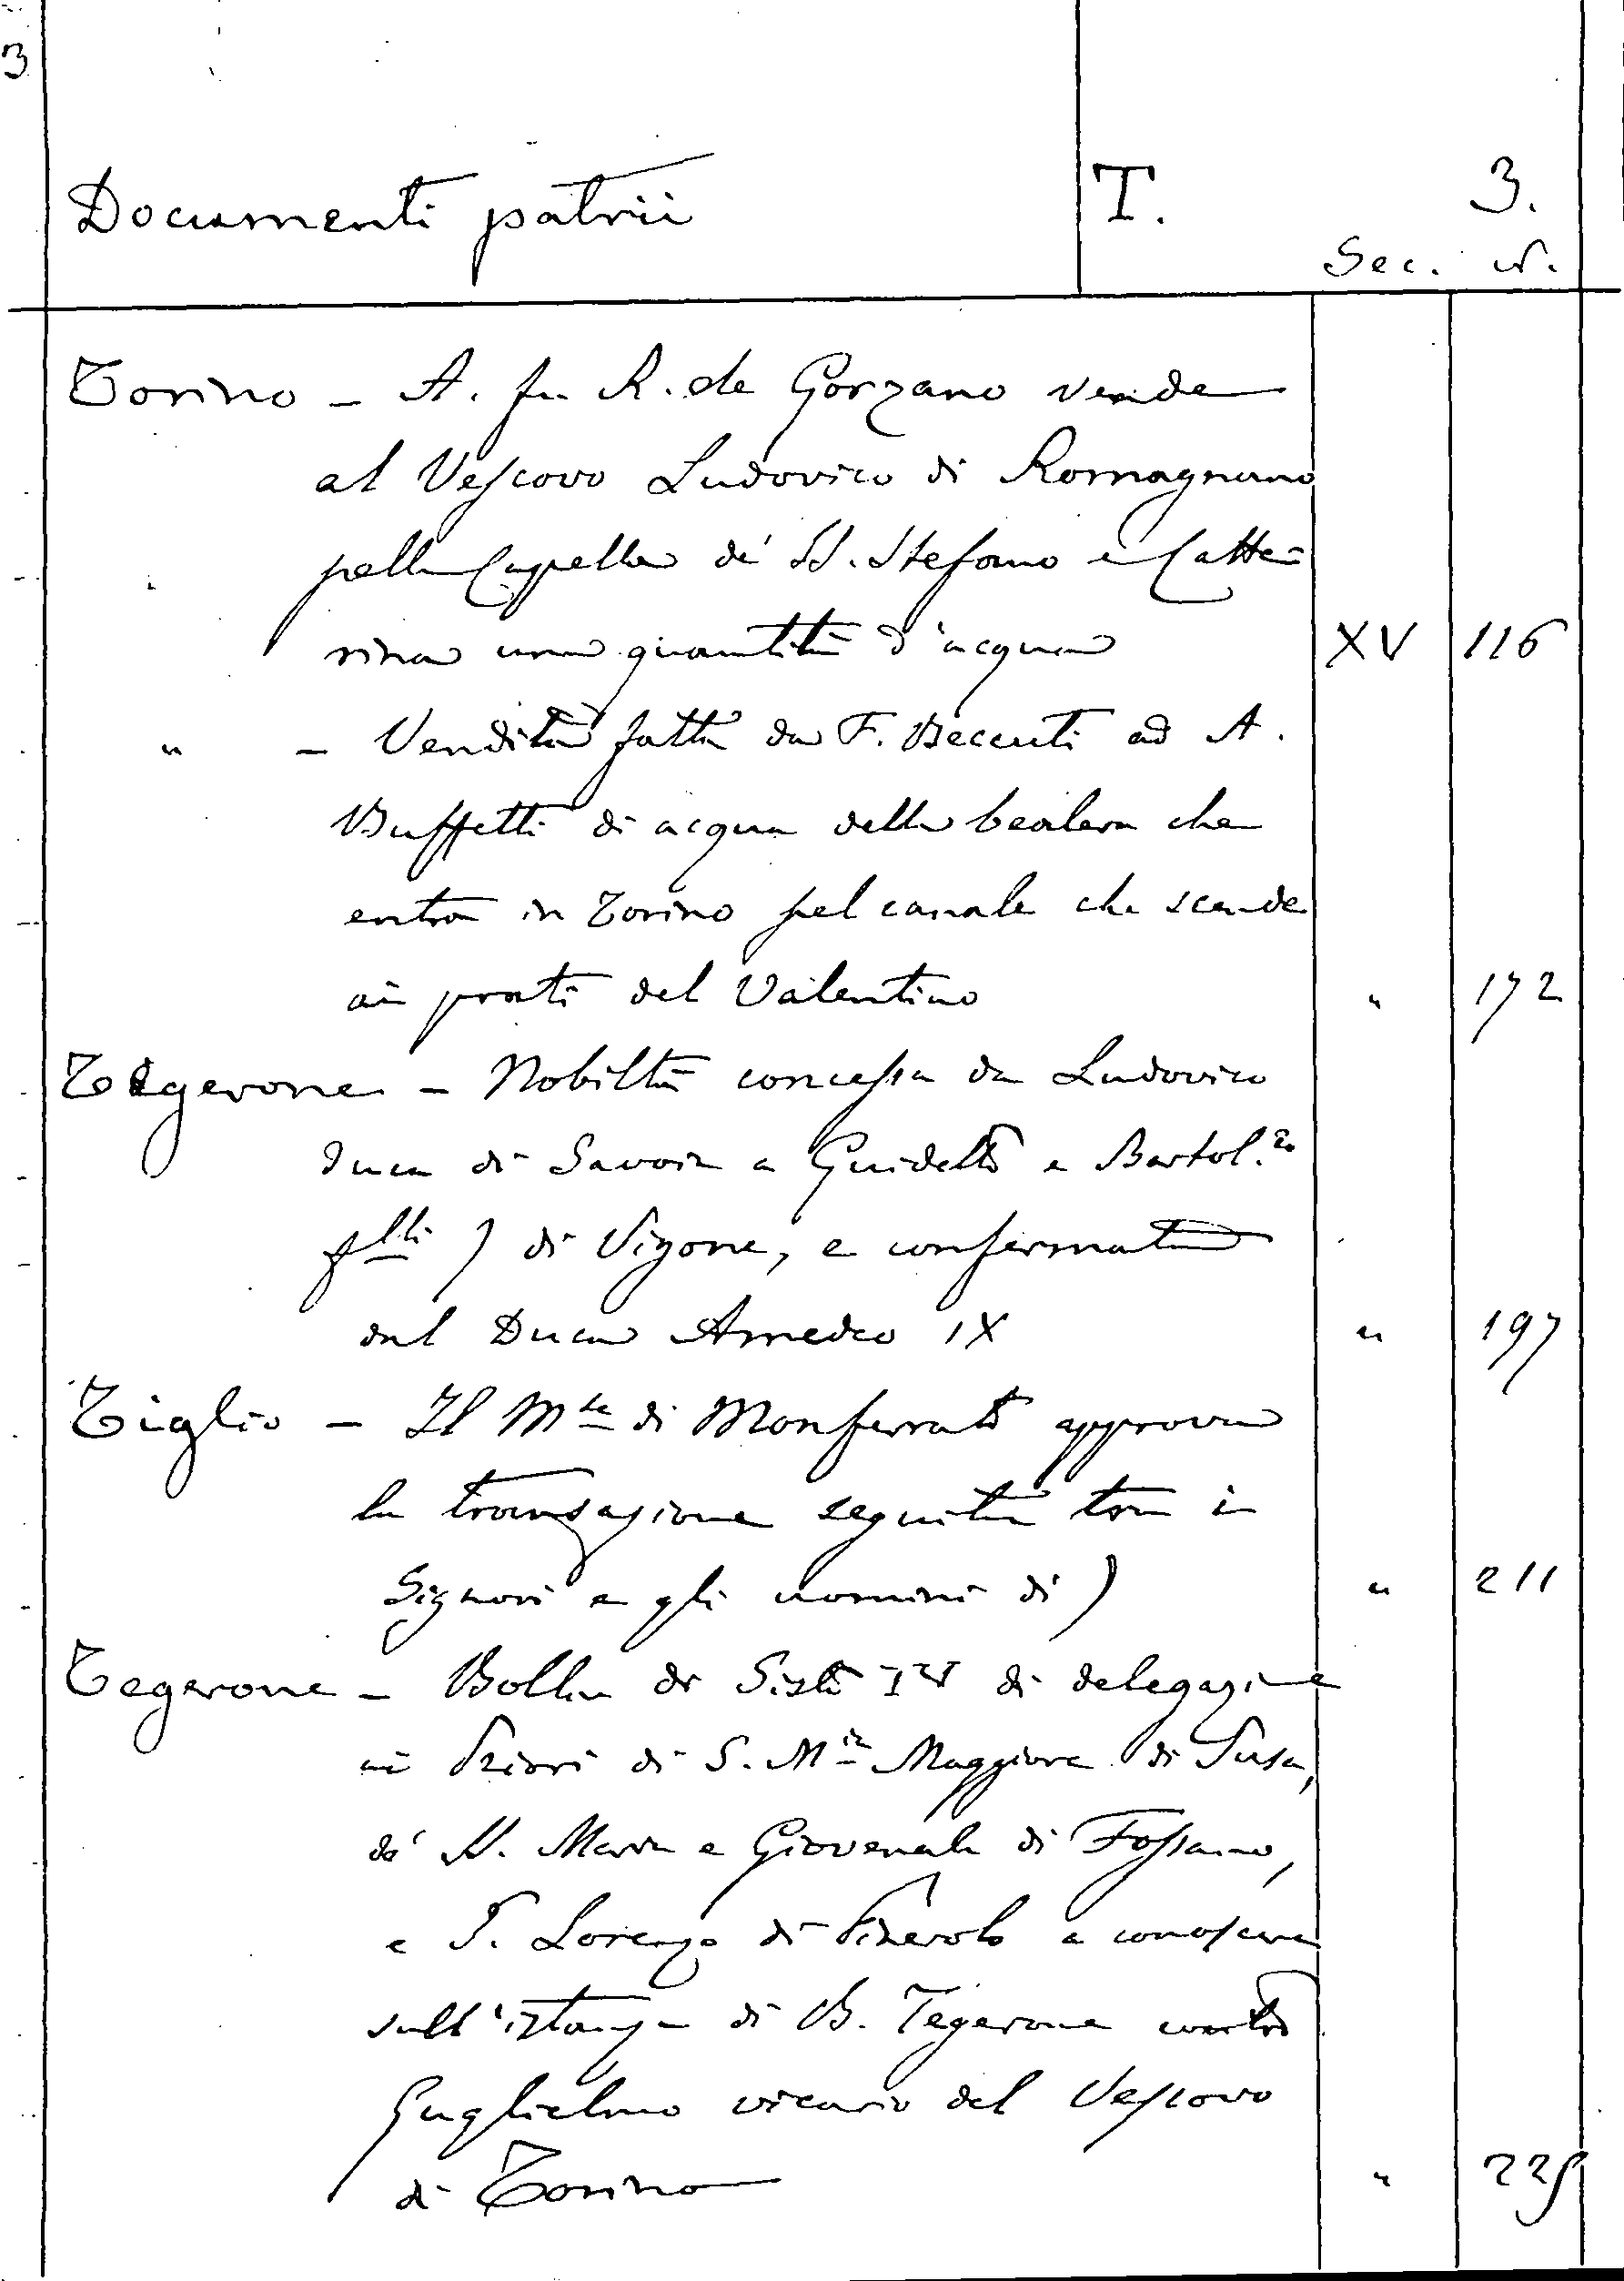 3
Documenti patrii T. 3.
Sec. N.
Torino - A. fu R. de Gorzano vende
al Vescovo Ludovico di Romagnano
pella Cappella de' SS. Stefano e Catte=
rina una quantità d'acqua XV 116
" - Vendita fatta da F. Beccuti ad A.
Buffetti di acqua della bealera che
entra in Torino pel canale che scende
ai prati del Valentino " 172
Tegerone - Nobiltà concessa da Ludovico
Duca di Savoia a Guidetto e Bartol.eo
flli ) di Vigone, e confermata
dal Duca Amedeo IX " 197
Tiglio - Il Mse di Monferrato approva
la transazione seguita tra i
Signori e gli uomini di ) " 211
Tegerone - Bolla di Sisto IV di delegazione
ai Priori di S. Mia Maggiore di Susa,
de' SS. Maria e Giovenale di Fossano,
e S. Lorenzo di Pinerolo a conoscere
sull'istanza di B. Tegerone contro
Guglielmo vicario del Vescovo
di Torino " 225